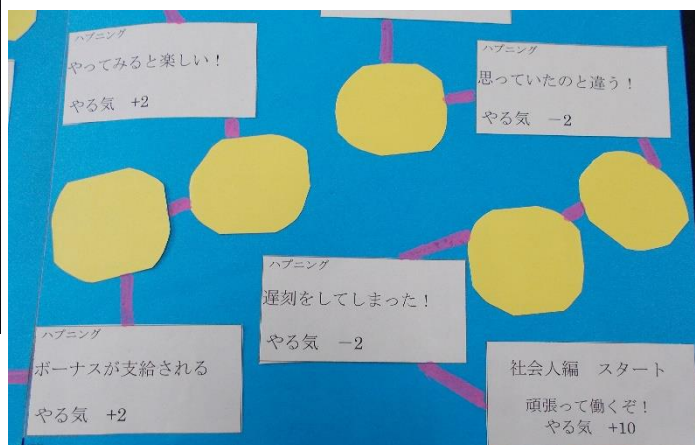 ハプニング
やってみると楽しい！
やる気　+2
ハプニング
思っていたのと違う！
やる気　－2
ハプニング
遅刻をしてしまった！
やる気　－2
ハプニング
ボーナスが支給される
やる気　+2
社会人編　スタート
頑張って働くぞ！
やる気　+10